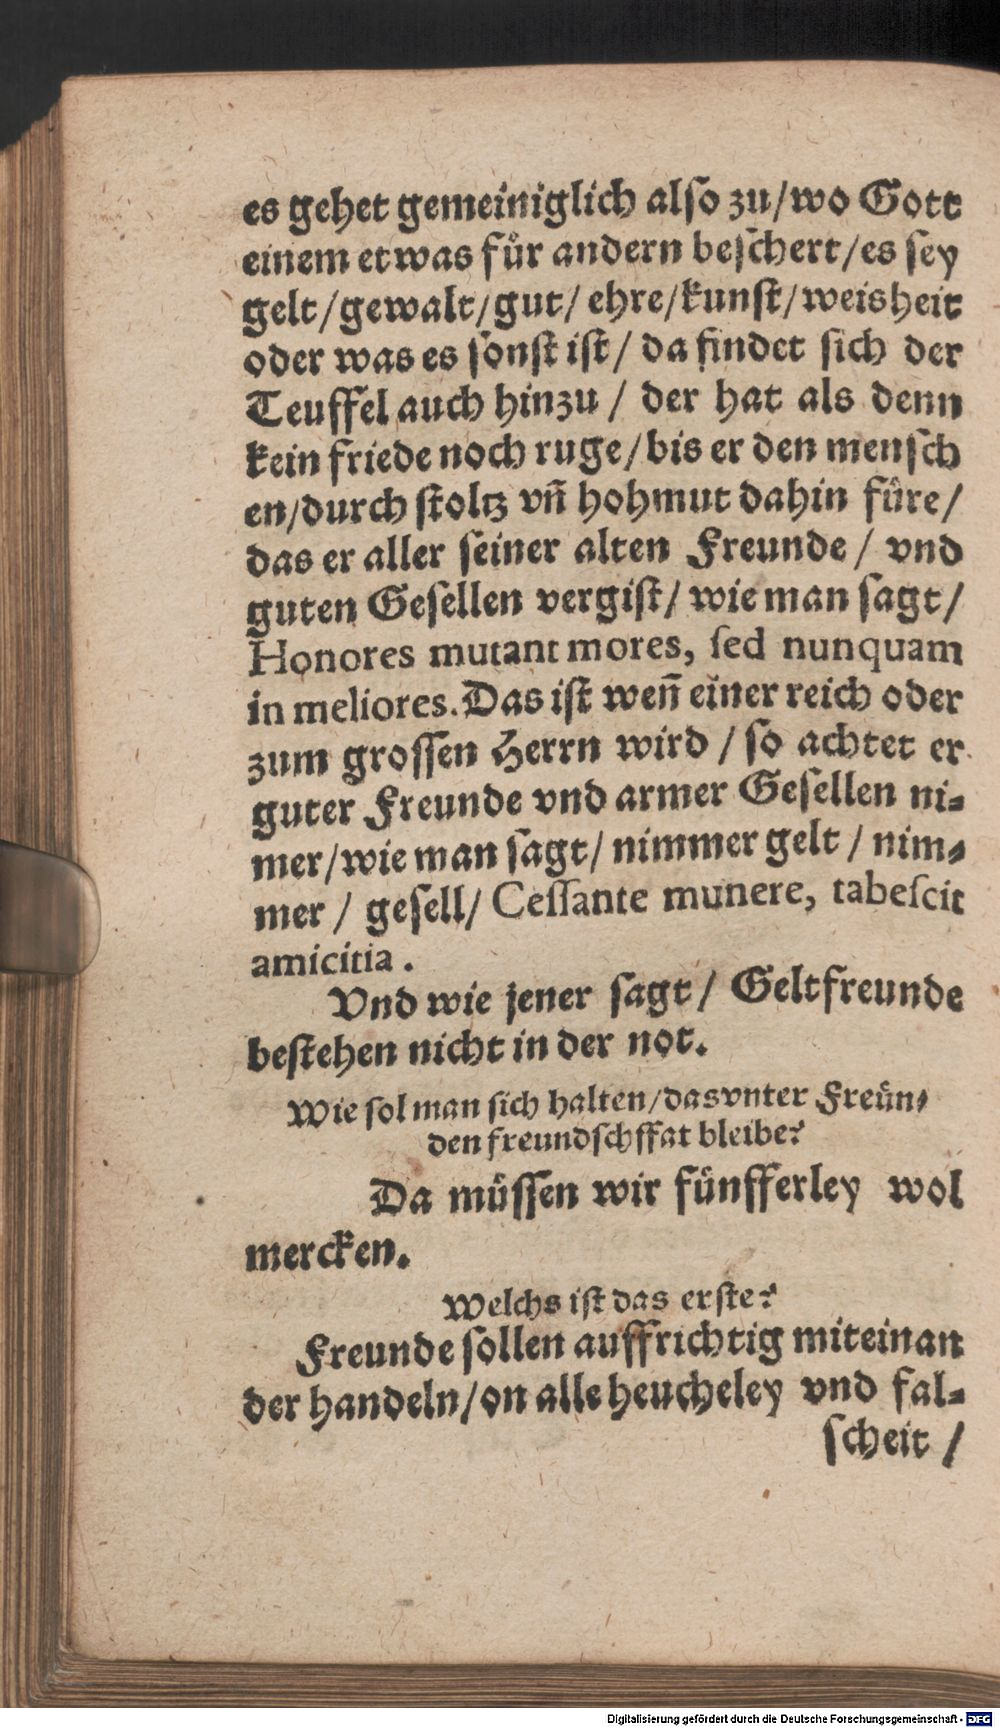 es gehet gemeiniglich also zu/wo Gott
einem etwas fuͤr andern beschert/es sey
gelt/gewalt/gut/ ehre/kunst/weisheit
oder was es sonst ist/ da findet sich der
Teuffel auch hinzu / der hat als denn
kein friede noch ruge/bis er den mensch
en/durch stoltz vñ hohmut dahin fuͤre/
das er aller seiner alten Freunde / vnd
guten Gesellen vergist/ wie man sagt/
Honores mutant mores, sed nunquam
in meliores. Das ist weñ einer reich oder
zum grossen Herrn wird / so achtet er
guter Freunde vnd armer Gesellen ni-
mer/wie man sagt/ nimmer gelt / nim-
mer / gesell/ Cessante munere, tabescit
amicitia.
Vnd wie jener sagt/ Geltfreunde
bestehen nicht in der not.
Wie sol man sich halten/das vnter Freuͤn-
den freundschffat bleibe?
Da muͤssen wir fuͤnfferley wol
mercken.
Welchs ist das erste?
Freunde sollen auffrichtig miteinan
der handeln/on alle heucheley vnd fal-
scheit /
Digitalisierung gefördert durch die Deutsche Forschungsgemeinschaft - DFG